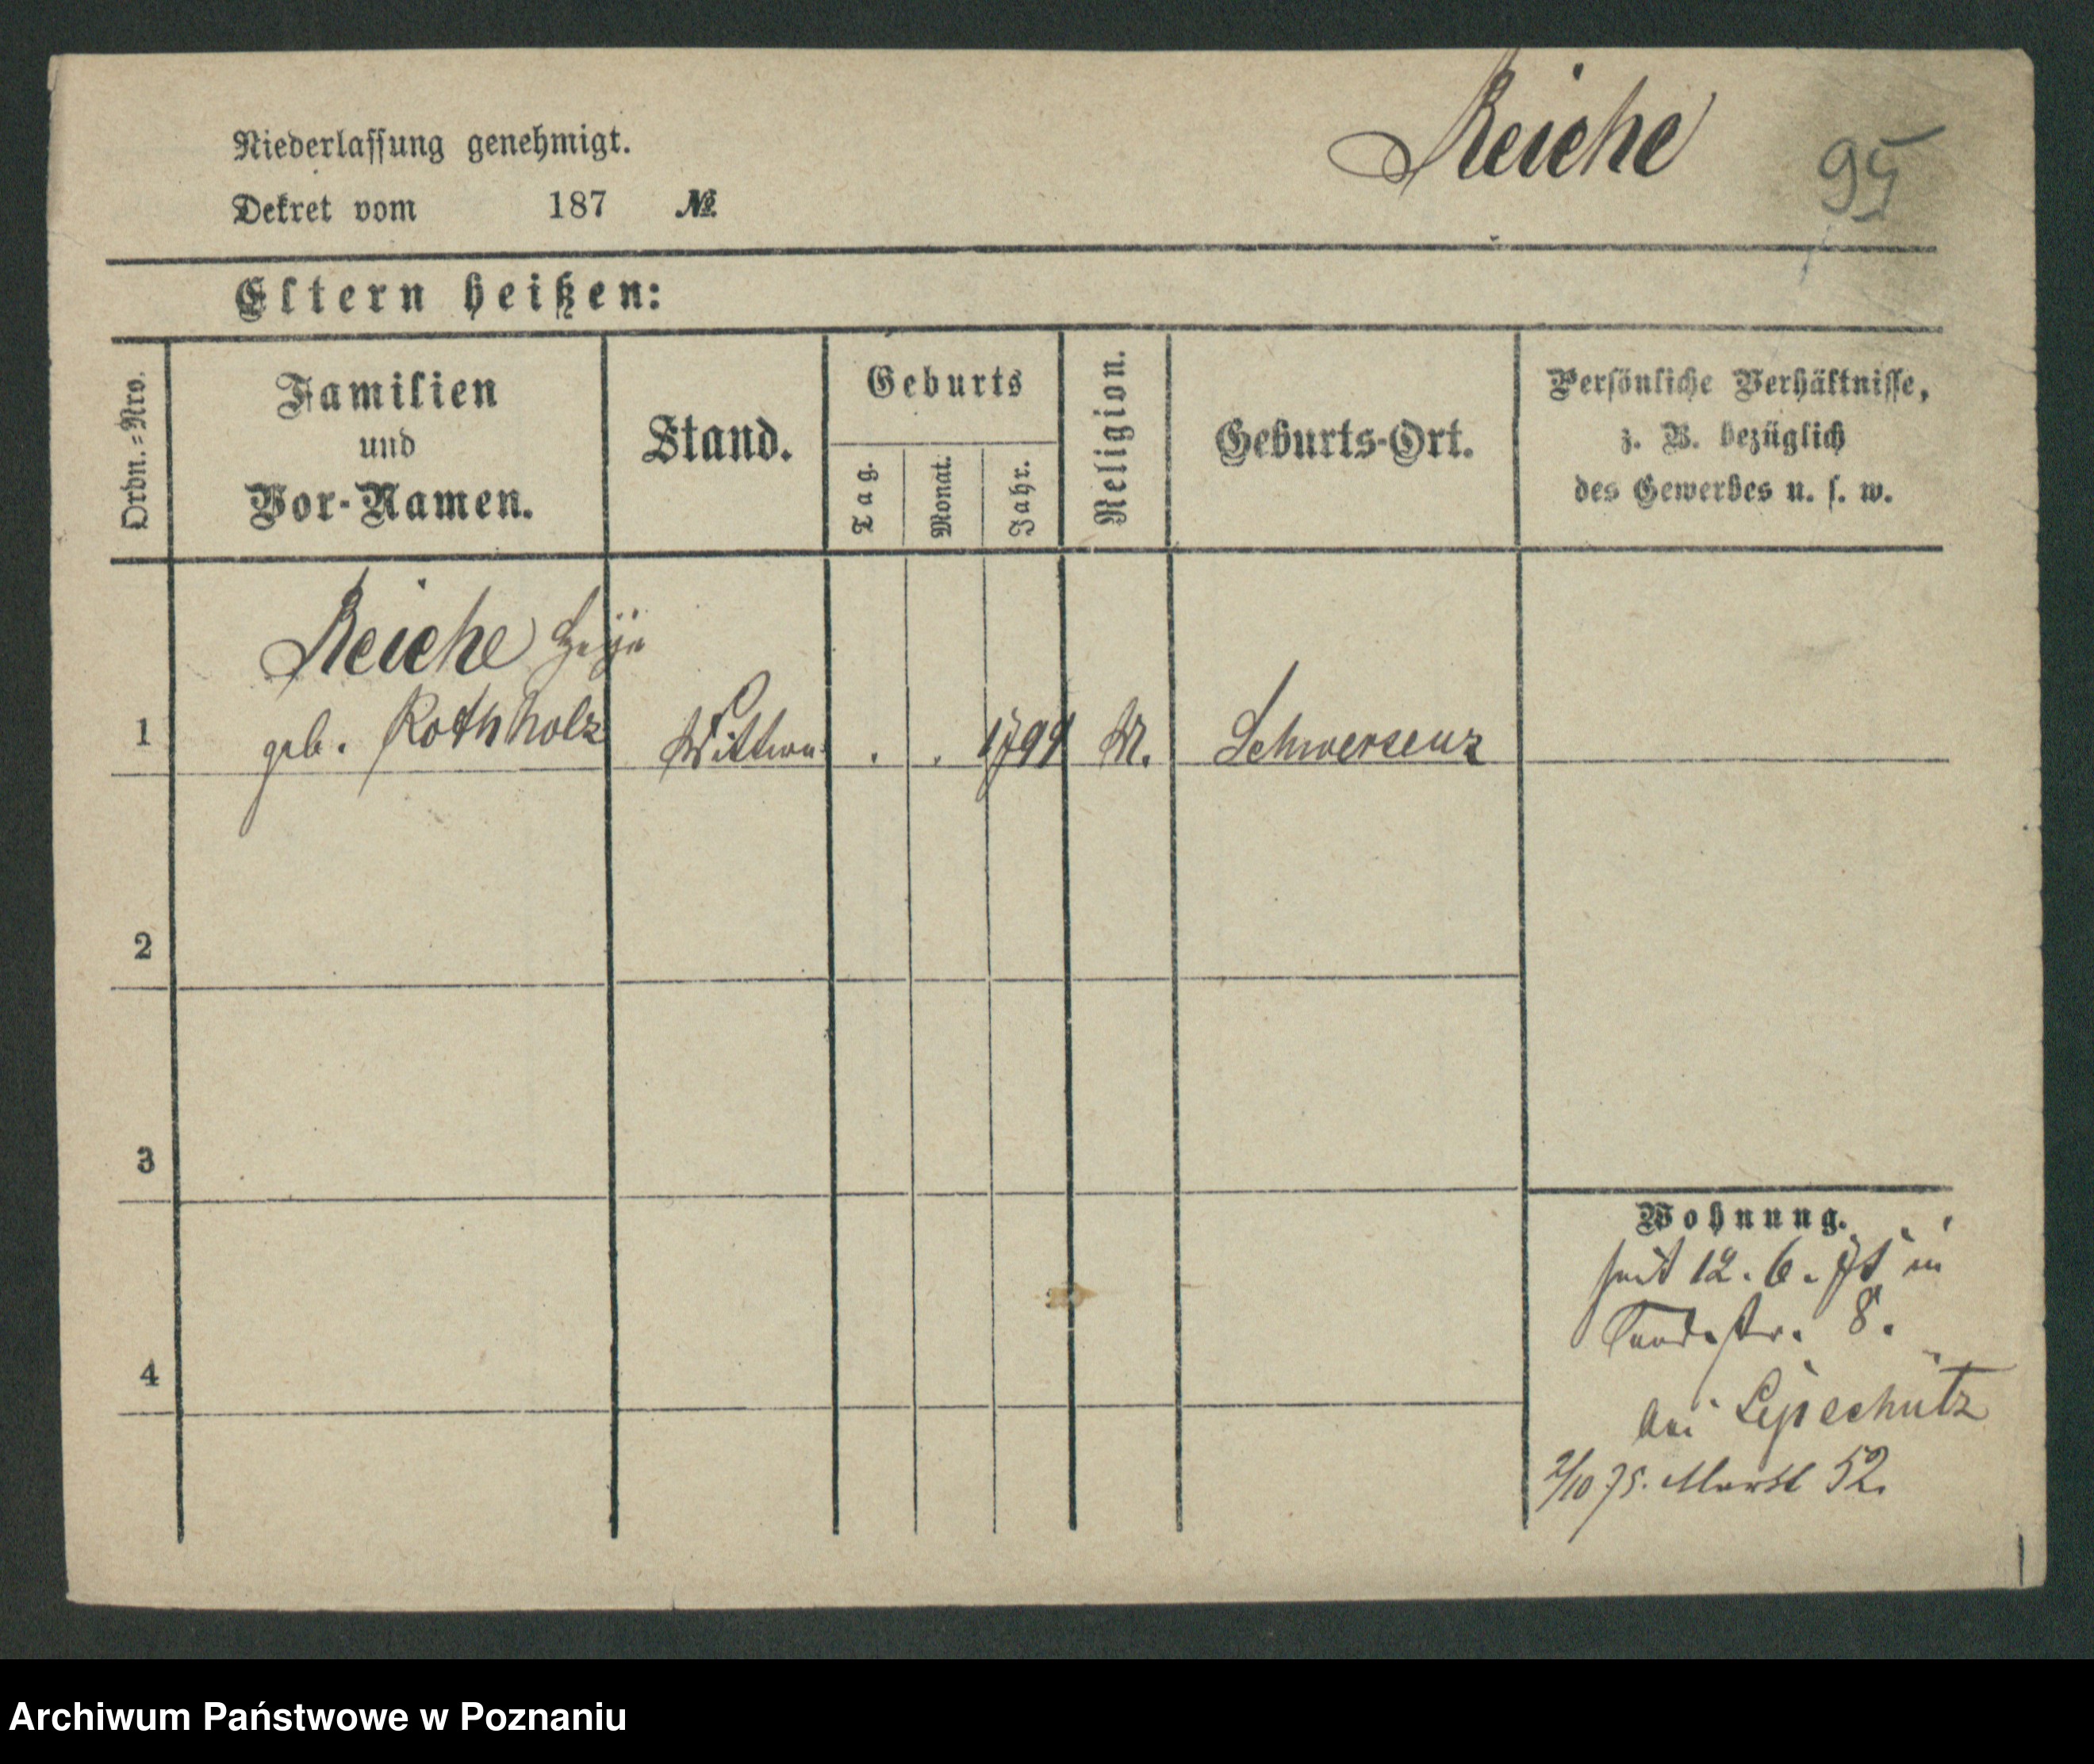 Reiche
95
Niederlassung genehmigt.
Dekret vom 187 №
Eltern heißen:
Ordn.=Nro.
Familien
und
Vor-Namen.
Stand.
Geburts
Tag.
Monat.
Jahr.
Religion.
Geburts-Ort.
Persönliche Verhältnisse,
z. B. bezüglich
des Gewerbes u. s. w.
Reiche
1 geb. Rothholz Wittwe . . 1799 M. Schwersenz
2
3
4
Wohnung.
seit 12. 6. in
8.
bei Lipschütz
2/10 75. Markt 52.
Archiwum Państwowe w Poznaniu